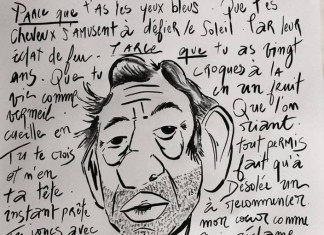 Parce que t'as les yeux bleus. Que tes
cheveux s'amusent à défier le soleil par leur
éclat de feu. Parce que tu as vingt
ans. Que tu croques à la
vie comme en un fruit
vermeil Que l'on
cueille en riant.
Tu te crois tout permis
et n'en fait qu'à
ta tête. Désolée un
instant prête à recommencer
mon cœur comme
avec